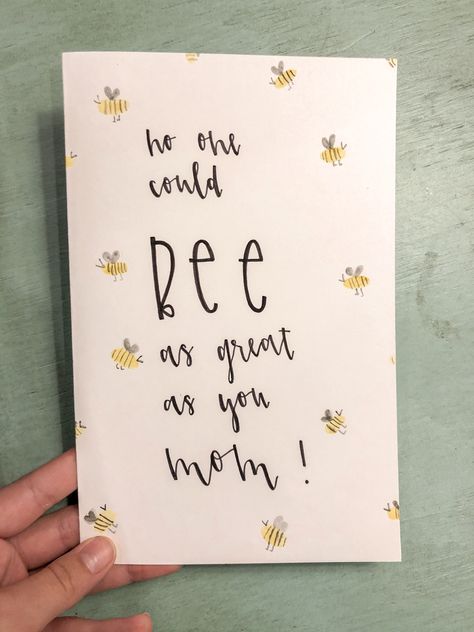 no one
could
Bee
as great
as you
mom!